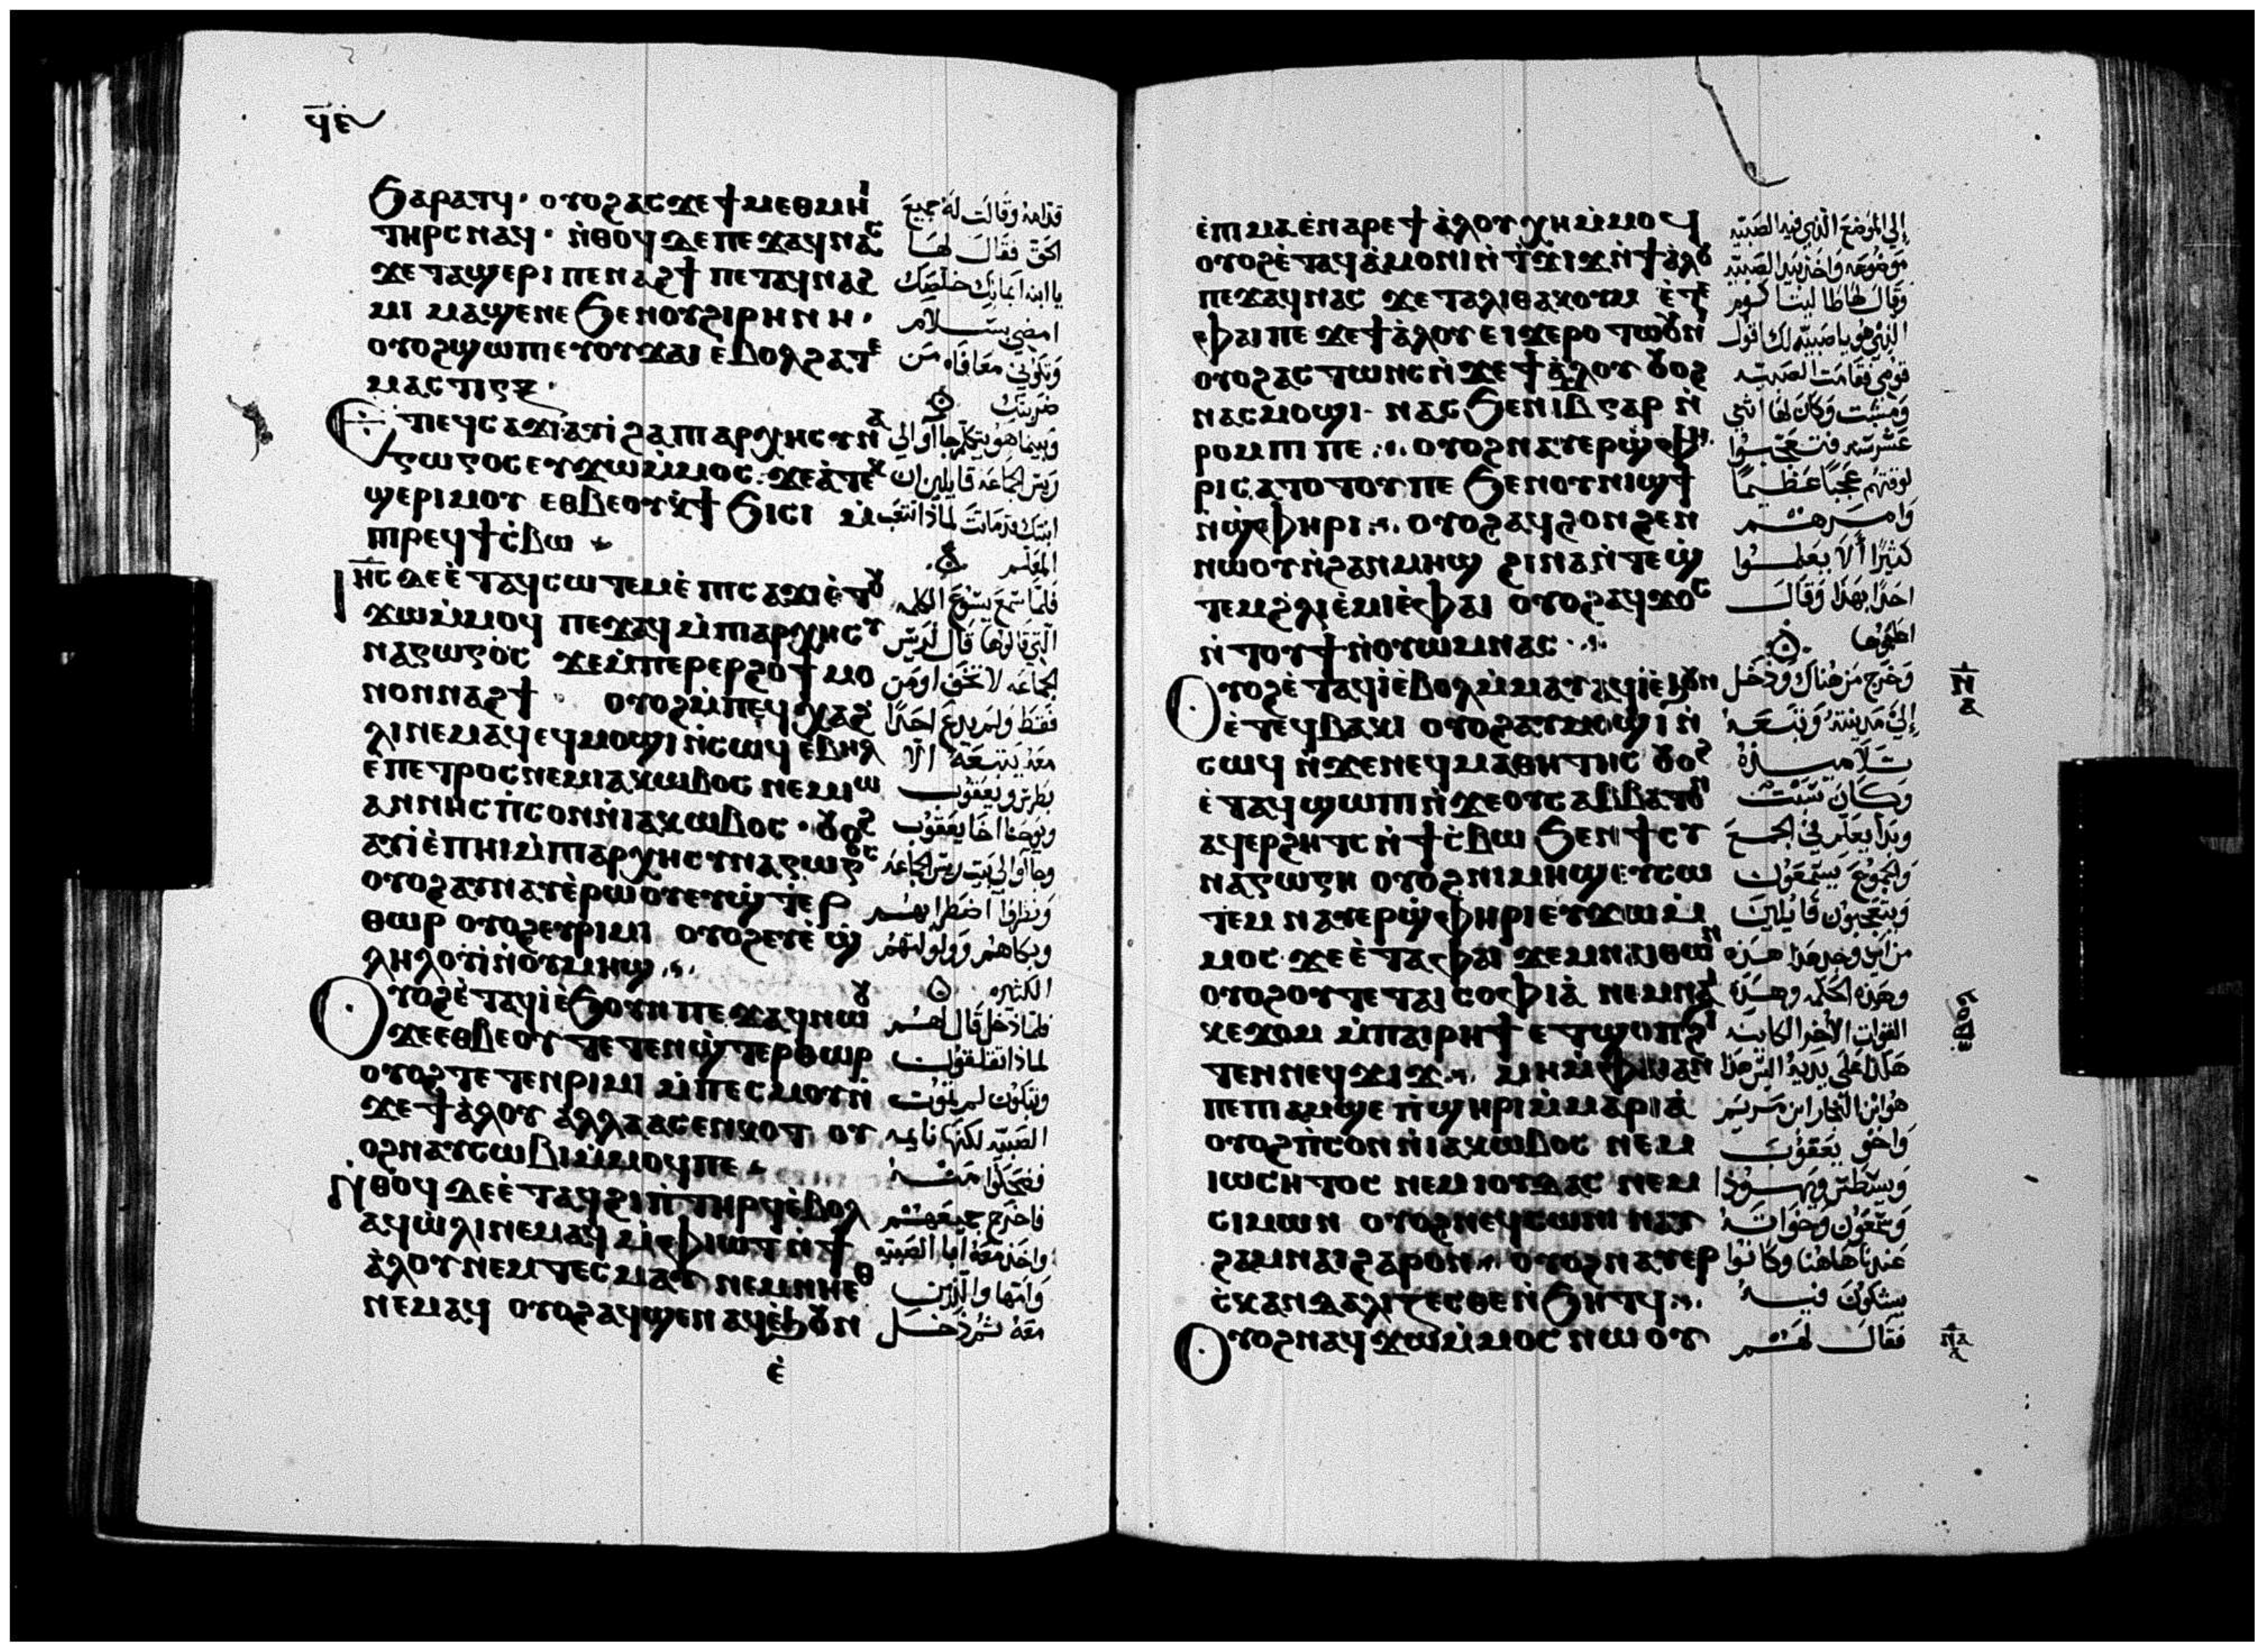 ϥⲉ̀
ϧⲁⲣⲁⲧϥ · ⲟⲩⲟϩ ⲁⲥϫⲉ ϯⲙⲉⲑⲙⲏⲓ
ⲧⲏⲣⲥ ⲛⲁϥ · ⲛ̀ⲑⲟϥ ⲇⲉ ⲡⲉϫⲁϥ ⲛⲁⲥ
ϫⲉ ⲧⲁϣⲉⲣⲓ ⲡⲉⲛⲁϩϯ ⲡⲉⲧⲁϥⲛⲁϩ
ⲙⲓ ⲙⲁϣⲉ ⲛⲉ ϧⲉⲛ ⲟⲩϩⲓⲣⲏⲛⲏ ·
ⲟⲩⲟϩ ϣⲱⲡⲓ ⲉⲧⲟⲩϫⲁⲓ ⲉ̀ⲃⲟⲗ ϩⲁ ⲧⲉ
ⲙⲁⲥⲧⲓⲅⲝ ·
ⲉⲧⲓ ⲉϥⲥⲁϫⲓ ⲁⲩⲓ̀ ϩⲁ ⲡⲁⲣⲭⲏⲥⲩⲛⲁ
ⲅⲱⲅⲟⲥ ⲉⲩϫⲱ ⲙ̀ⲙⲟⲥ · ϫⲉ ⲁ̀ ⲧⲉⲕ
ϣⲉⲣⲓ ⲙⲟⲩ ⲉⲑⲃⲉⲟⲩ ⲕ̀ϯϧⲓⲥⲓ ⲙ̀
ⲡⲣⲉϥϯⲥ̀ⲃⲱ
ⲓⲏⲥ ⲇⲉ ⲉ̀ⲧⲁϥⲥⲱⲧⲉⲙ ⲉ̀ⲡⲓⲥⲁϫⲓ ⲉ̀ⲧⲟⲩ
ϫⲱ ⲙ̀ⲙⲟϥ ⲡⲉϫⲁϥ ⲙ̀ⲡⲁⲣⲭⲏⲥⲩ
ⲛⲁⲅⲱⲅⲟ̀ⲥ ϫⲉ ⲙ̀ⲡⲉⲣⲉⲣϩⲟϯ ⲙⲟ
ⲛⲟⲛ ⲛⲁϩϯ ⲟⲩⲟϩ ⲙ̀ⲡⲉϥⲭⲁϩ̀
ⲗⲓ ⲛⲉⲙⲁϥ ⲉϥⲙⲟϣⲓ ⲛ̀ⲥⲱϥ ⲉ̀ⲃⲏⲗ
ⲉⲡⲉⲧⲣⲟⲥ ⲛⲉⲙ ⲓⲁⲕⲱⲃⲟⲥ ⲛⲉⲙ ⲓⲱ
ⲁⲛⲛⲏⲥ ⲡ̀ⲥⲟⲛ ⲛ̀ⲓⲁⲕⲱⲃⲟⲥ · ⲟⲩⲟϩ
ⲁⲩⲓ̀ ⲉ̀ⲡⲏⲓ ⲙ̀ⲡⲁⲣⲭⲏⲥⲩⲛⲁⲅⲱⲅⲟⲥ
ⲟⲩⲟϩ ⲁⲩⲛⲁⲩ ⲉ̀ⲣⲱⲟⲩ ⲉⲩϣ̀ⲧⲉⲣ
ⲑⲱⲣ ⲟⲩⲟϩ ⲉⲩⲣⲓⲙⲓ ⲟⲩⲟϩ ⲉⲩⲉ̀ϣ
ⲗⲏⲗⲟⲩⲓ̀ ⲛ̀ⲟⲩⲙⲏϣ
ⲟⲩⲟϩ ⲉ̀ⲧⲁϥⲓ̀ ⲉ̀ϧⲟⲩⲛ ⲡⲉϫⲁϥ ⲛⲱⲟⲩ
ϫⲉ ⲉⲑⲃⲉⲟⲩ ⲧⲉⲧⲉⲛϣ̀ⲧⲉⲣⲑⲱⲣ
ⲟⲩⲟϩ ⲧⲉⲧⲉⲛⲣⲓⲙⲓ ⲙ̀ⲡⲉⲥⲙⲟⲩ ⲛ̀
ϫⲉ ϯⲁ̀ⲗⲟⲩ ⲁⲗⲗⲁ ⲁⲥⲉⲛⲕⲟⲧ ⲟⲩ
ⲟϩ ⲛⲁⲩⲥⲱⲃⲓ ⲙ̀ⲙⲟϥ ⲡⲉ
ⲛ̀ⲑⲟϥ ⲇⲉ ⲉ̀ⲧⲁϥϩⲓⲡ̀ⲧⲏⲣϥ ⲉ̀ⲃⲟⲗ
ⲁϥⲱ̀ⲗⲓ ⲛⲉⲙⲁϥ ⲙ̀ⲫⲓⲱⲧ ⲛϯ
ⲁ̀ⲗⲟⲩ ⲛⲉⲙ ⲧⲉⲥⲙⲁⲩ ⲛⲉⲙ ⲛⲏ ⲉⲑ
ⲛⲉⲙⲁϥ ⲟⲩⲟϩ ⲁϥϣⲉ ⲛⲁϥ ⲉ̀ϧⲟⲩⲛ
ⲉ̀
قدامه وقالت له جميع
الحق فقال لها
يا ابنه ايمانك خلصك
امضي بسلام
وتكوني معافاه من
ضربتك
وبينما هو يتكلم جا اوالي
ريس الجماعه قايلين ان
ابنتك قد ماتت لماذا تتعب
المعلم
فلما سمع يسوع الكلمه
التي قالوها قال لريس
الجماعه لا تخف اومن
فقط ولم يدع احدا
معه يتبعه الا
بطرس ويعقوب
ويوحنا اخا يعقوب
وجااوا الى بيت ريس الجماعه
ونظروا اضطرابهم
وبكاهم وولولتهم
الكثيره
فلما دخل قال لهم
لماذا تقلقون
وتبكون لم تموت
الصبيه لكنها نايمه
فضحكوا منه
فاخرج جميعهم
واخذ معه ابا الصبيه
وامها والذين
معه ثم دخل
ⲉ̀ⲡⲙⲁ ⲉ̀ⲛⲁⲣⲉ ϯⲁ̀ⲗⲟⲩ ⲭⲏ ⲙ̀ⲙⲟϥ
ⲟⲩⲟϩ ⲉ̀ⲧⲁϥⲁ̀ⲙⲟⲛⲓ ⲛ̀ⲧ̀ϫⲓϫ ⲛ̀ϯⲁ̀ⲗⲟⲩ
ⲡⲉϫⲁϥ ⲛⲁⲥ ϫⲉ ⲧⲁⲗⲓⲑⲁ ⲕⲟⲩⲙ ⲉ̀ⲧⲉ
ⲫⲁⲓ ⲡⲉ ϫⲉ ϯⲁ̀ⲗⲟⲩ ⲉⲓϫⲉⲣⲟ ⲧⲱⲟⲩⲛⲓ
ⲟⲩⲟϩ ⲁⲥⲧⲱⲛⲥ ⲛ̀ϫⲉ ϯⲁ̀ⲗⲟⲩ ⲟⲩⲟϩ
ⲛⲁⲥⲙⲟϣⲓ · ⲛⲁⲥϧⲉⲛ ⲓⲃ ⲅⲁⲣ ⲛ̀
ⲣⲟⲙⲡⲓ ⲡⲉ ⲟⲩⲟϩ ⲛⲁⲩⲉⲣϣ̀ⲫⲏ
ⲣⲓ ⲥⲁⲧⲟⲧⲟⲩ ⲡⲉ ϧⲉⲛ ⲟⲩⲛⲓϣϯ
ⲛ̀ϣ̀ⲫⲏⲣⲓ ⲟⲩⲟϩ ⲁϥϩⲟⲛϩⲉⲛ
ⲛⲱⲟⲩ ⲛ̀ϩⲁⲛⲙⲏϣ ϩⲓⲛⲁ ⲛ̀ⲧⲉϣ̀
ⲧⲉⲙϩ̀ⲗⲓ ⲉ̀ⲙⲓ ⲉ̀ⲫⲁⲓ ⲟⲩⲟϩ ⲁϥϫⲟⲥ
ⲛ̀ⲧⲟⲩϯ ⲛ̀ⲟⲩⲱⲙ ⲛⲁⲥ
ⲟⲩⲟϩ ⲉ̀ⲧⲁϥⲓ̀ ⲉ̀ⲃⲟⲗ ⲙ̀ⲙⲁⲩ ⲁϥⲓ̀ ⲉ̀ϧⲟⲩⲛ
ⲉ̀ⲧⲉϥⲃⲁⲕⲓ ⲟⲩⲟϩ ⲁⲩⲙⲟϣⲓ ⲛ̀
ⲥⲱϥ ⲛ̀ϫⲉ ⲛⲉϥⲙⲁⲑⲏⲧⲏⲥ ⲟⲩⲟϩ
ⲉ̀ⲧⲁϥϣⲱⲡⲓ ⲛ̀ϫⲉ ⲟⲩⲥⲁⲃⲃⲁⲧⲟⲛ
ⲁϥⲉⲣϩⲏⲧⲥ ⲛ̀ϯⲥ̀ⲃⲱ ϧⲉⲛ ϯⲥⲩ
ⲛⲁⲅⲱⲅⲏ ⲟⲩⲟϩ ⲛⲓⲙⲏϣ ⲉⲩⲥⲱ
ⲧⲉⲙ ⲛⲁⲩⲉⲣϣ̀ⲫⲏⲣⲓ ⲉⲩϫⲱ ⲙ̀
ⲙⲟⲥ · ϫⲉ ⲉ̀ⲧⲁ ⲫⲁⲓ ϫⲉⲙ ⲛⲁⲓ ⲑⲱⲛ
ⲟⲩⲟϩ ⲟⲩ ⲧⲉ ⲧⲁⲓⲥⲟⲫⲓⲁ̀ ⲛⲉⲙ ⲛⲁⲓ
ⲕⲉϫⲟⲙ ⲙ̀ⲡⲁⲓⲣⲏϯ ⲉⲧϣⲟⲡ ϩⲓ
ⲧⲉⲛ ⲛⲉϥϫⲓϫ ⲙⲏ ⲙ̀ⲫⲁⲓ ⲁⲛ
ⲡⲉ ⲡⲁⲙϣⲉ ⲡ̀ϣⲏⲣⲓ ⲙ̀ⲙⲁⲣⲓⲁ̀
ⲟⲩⲟϩ ⲡ̀ⲥⲟⲛ ⲛ̀ⲓⲁⲕⲱⲃⲟⲥ ⲛⲉⲙ
ⲓⲱⲥⲏⲧⲟⲥ ⲛⲉⲙ ⲓⲟⲩⲇⲁⲥ ⲛⲉⲙ
ⲥⲓⲙⲱⲛ ⲟⲩⲟϩ ⲛⲉϥⲥⲱⲛⲓ ⲛⲁⲩ
ϩⲁⲙⲛⲁⲓ ϩⲁⲣⲟⲛ ⲟⲩⲟϩ ⲛⲁⲩⲉⲣ
ⲥ̀ⲕⲁⲛⲇⲁⲗⲓⲍⲉⲥⲑⲉ ⲛ̀ϧⲏⲧϥ
ⲟⲩⲟϩ ⲛⲁϥϫⲱ ⲙ̀ⲙⲟⲥ ⲛⲱⲟⲩ
الى الموضع الذي فيه الصبيه
موضوعه واخذ بيد الصبيه
وقال لها طاليتا كوم
الذي هو يا صبيه لك اقول
قومي فقامت الصبيه
ومشت وكان لها اثني
عشر سنه فتعجبوا
لوقتهم عجبا عظيما
وامرهم
كثيرا الا يعلموا
احدا بهذا وقال
اطعموها
وخرج من هناك ودخل
الى مدينته وتبعه
تلاميذه
وكان سبت
وبدا يعلم في الجمع
والجموع يسمعون
ويتعجبون قايلين
من اين وجد هذا هذه
وهذه الحكمه
القوات الاخر الكاينه
هكذا على يديه اليس هذا
هو ابن النجار ابن مريم
واخو يعقوب
ويسطس ويهوذا
وسمعون وخواته
عندنا هاهنا وكانوا
يشكون فيه
فقال لهم
ⲛ̅
ⲁ
ⲛⲁ
ⲁ